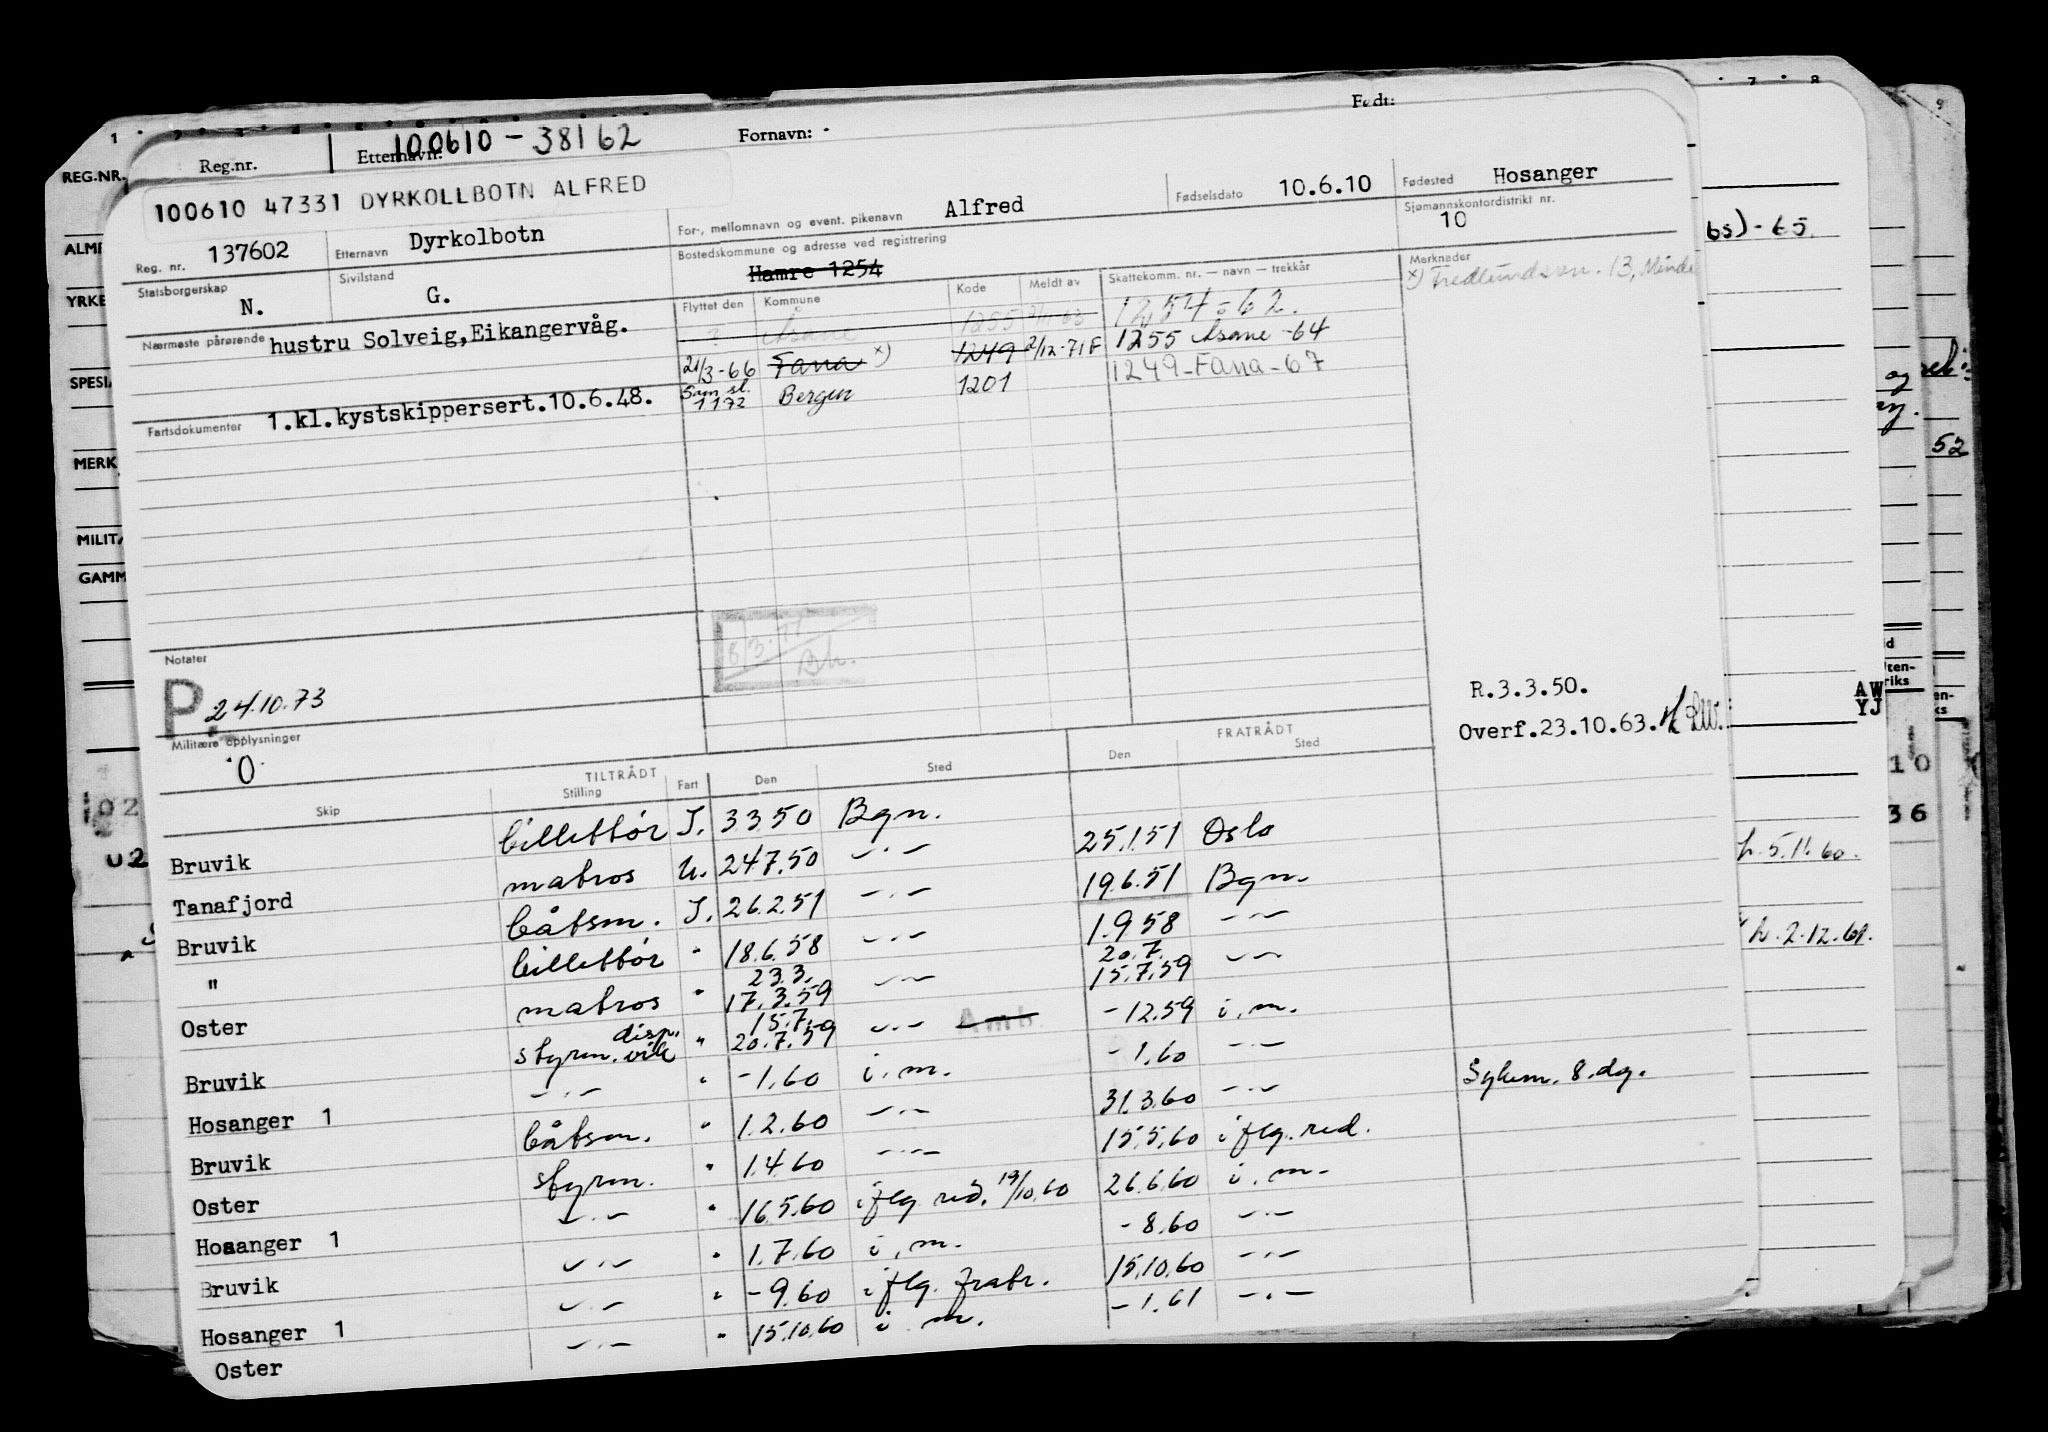 Reg.nr. Etternavn: 100610 - 38162 Fornavn: Født:
100610 47331 DYRKOLLBOTN ALFRED
Reg. nr. 137602 Etternavn Dyrkolbotn For-, mellomnavn og event. pikenavn Alfred Fødselsdato 10.6.10 Fødested Hosanger
Statsborgerskap N. Sivilstand G. Bostedskommune og adresse ved registrering Hamre 1254 Sjømannskontordistrikt nr. 10
Nærmeste pårørende hustru Solveig,Eikangervåg.
Flyttet den Kommune Kode Meldt av Skattekomm. nr. — navn — trekkår Merknader
? Åsane 1255 1254-62. x) Fredlundsvn. 13, Minde
21/3-66 Fana x) 1249 2/12-71F 1255 Åsane -64
Sam. sl. 1172 Bergen 1201 1249-Fana-67
Fartsdokumenter 1.kl.kystskippersert.10.6.48.
Notater
P. 24.10.73
Bh.
R.3.3.50.
Overf.23.10.63.
Militære opplysninger
0
TILTRÅDT FRATRÅDT
Skip Stilling Fart Den Sted Den Sted
Bruvik billettør I. 3350 Bgn. 25.1.51 Oslo
Tanafjord matros U. 24.7.50 —"— 19.6.51 Bgn.
Bruvik båtsm. I. 26.2.51 —"— 1.9.58 —"—
" billettør " 18.6.58 —"— 20.7. 15.7.59 —"—
Oster matros " 23.3. 17.3.59 —"— -12.59 i.m.
Bruvik styrm. disp. vik " 15.7. 20.7.59 —"— -1.60 —"—
Hosanger 1 —"— " -1.60 i.m. 31.3.60 —"— Sykem. 8.dg.
Bruvik båtsm. " 1.2.60 —"— 15.5.60 iflg. red.
Oster styrm. " 1.4.60 —"— 26.6.60 i.m.
Hosanger 1 —"— " 16.5.60 iflg red. 19/10.60 -8.60 —"—
Bruvik —"— " 1.7.60 i.m. 15.10.60 —"—
Hosanger 1 —"— " -9.60 iflg. fratr. -1.61 —"—
Oster —"— " 15.10.60 i m.
REG.NR.
ALM
YRKE
SPESI
MERK
MILIT
GAMM
65)-65.
og
52
AW
YJ
10
36
h. 5.11.60.
h. 2.12.61.
02